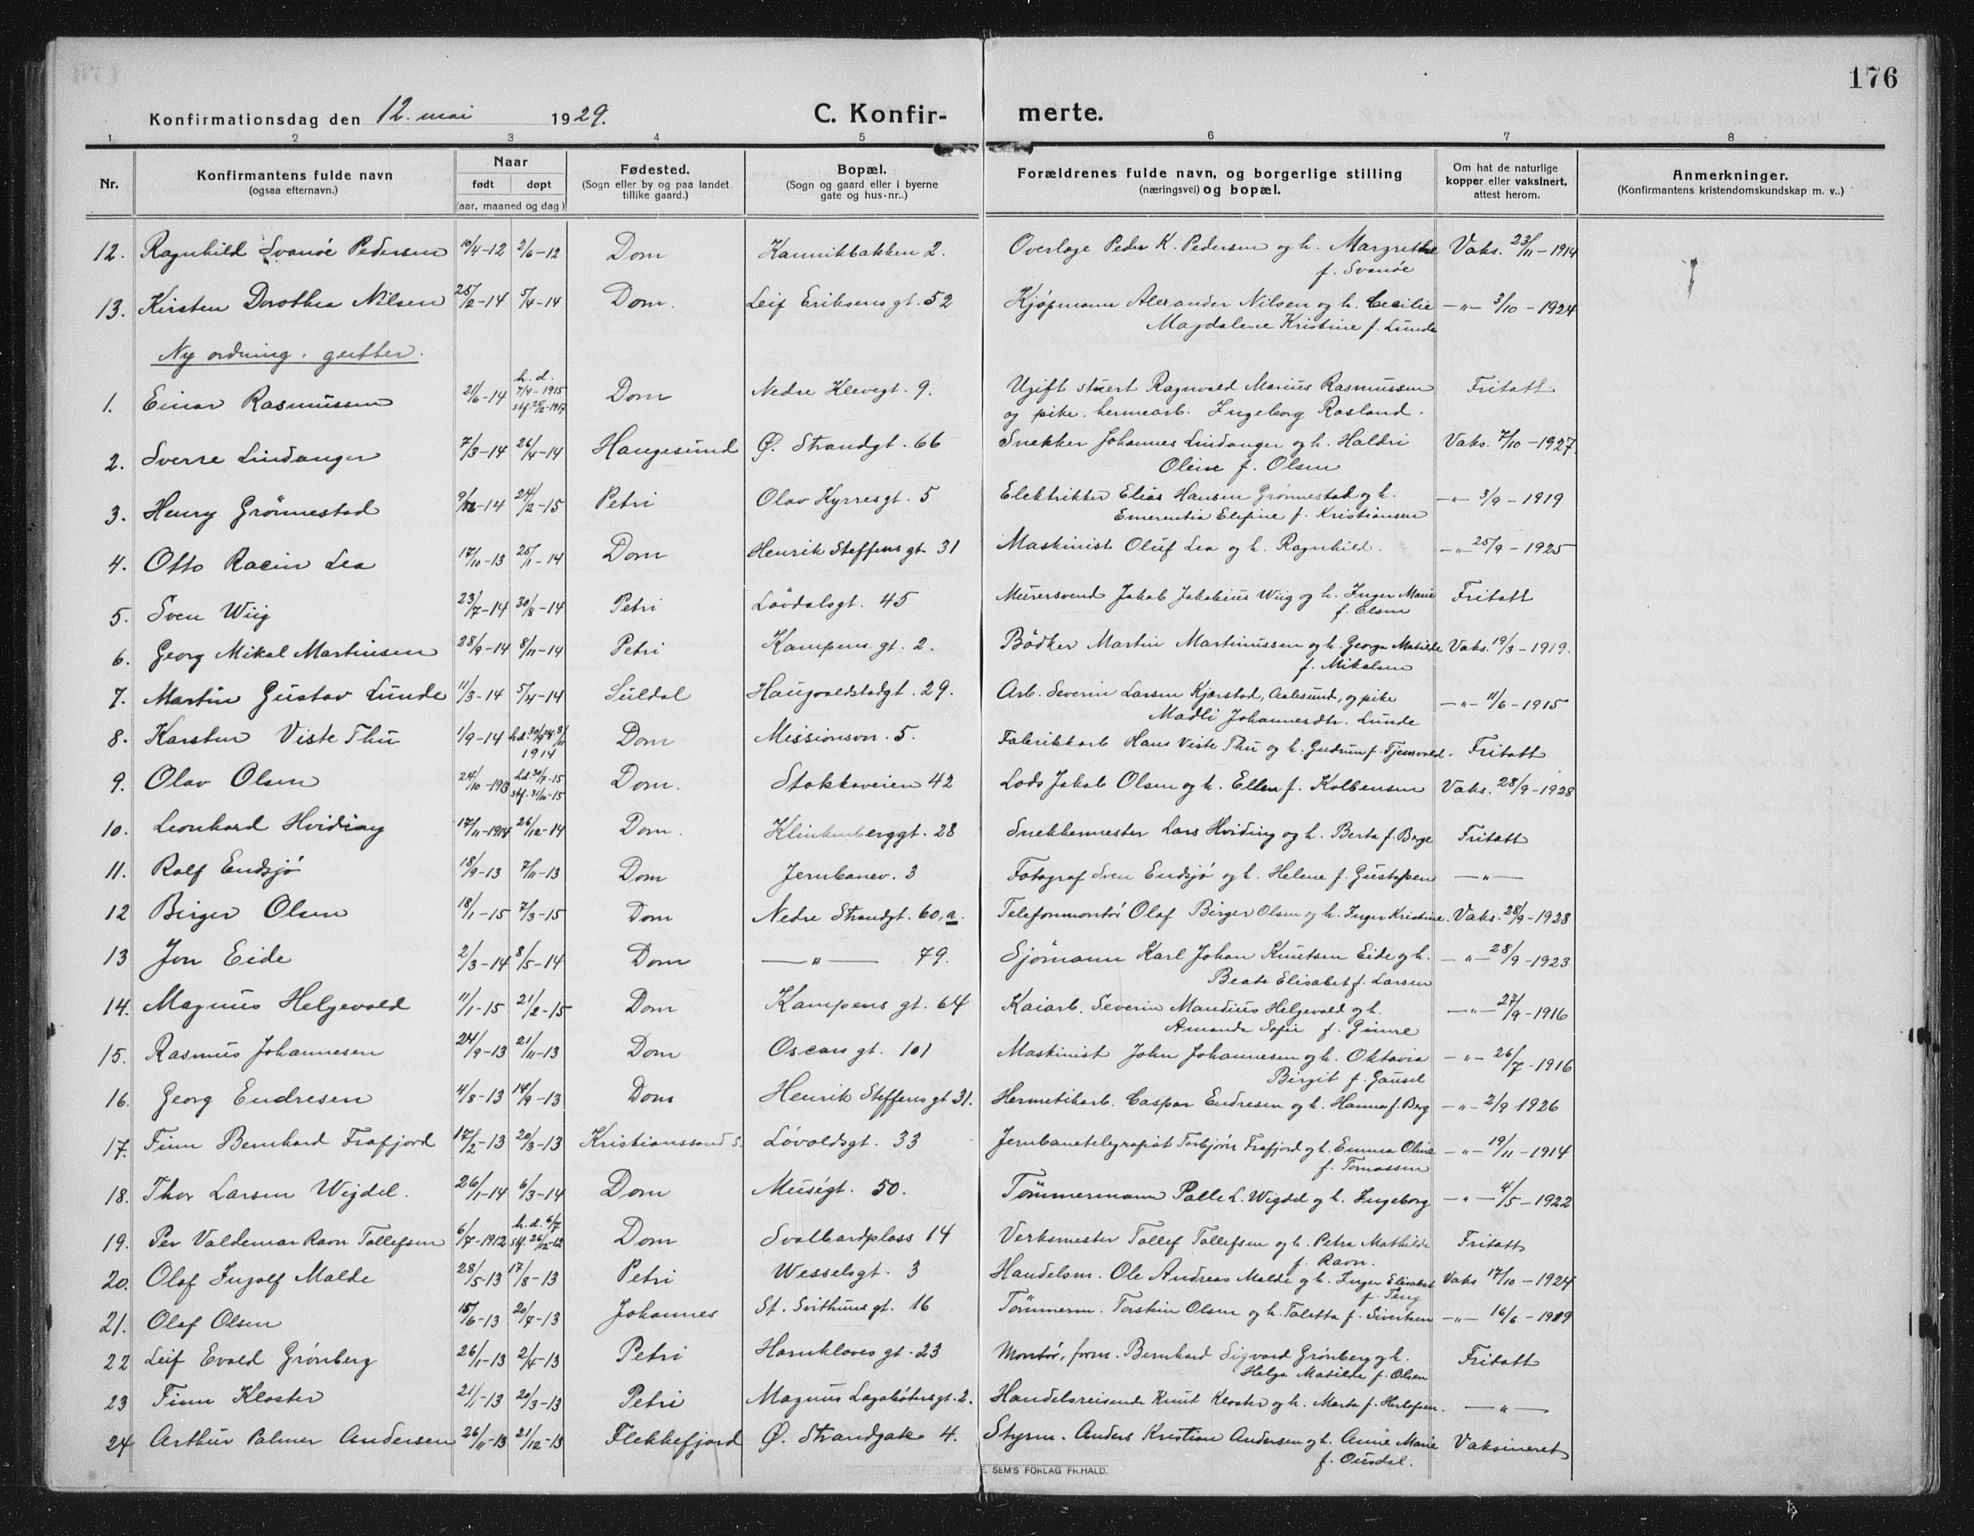 176
Konfirmationsdag den 12. mai 1929. C. Konfir- merte.
1 2 3 4 5 6 7 8
Nr. Konfirmantens fulde navn (ogsaa efternavn.) Naar født døpt (aar, maaned og dag) Fødested. (Sogn eller by og paa landet tillike gaard.) Bopæl. (Sogn og gaard eller i byerne gate og hus-nr..) Forældrenes fulde navn, og borgerlige stilling (næringsvei) og bopæl. Om hat de naturlige kopper eller vaksinert, attest herom. Anmerkninger. (Konfirmantens kristendomskundskap m. v..)
12. Ragnhild Svanöe Pedersen 10/4-12 2/6-12 Dom Kannikbakken 2. Overlæge Peder K. Pedersen og h. Margrethe Vaks. 23/11-1914
f. Svanöe
13. Kirsten Dorothea Nilsen 25/2-14 5/4-14 Dom. Leif Eriksens gt. 52 Kjøpmann Alexander Nilsen og h. Cecilie -"- 3/10-1924
Magdalene Kristine f. Lunde
Ny ordning. gutter.
1. Einar Rasmussen 21/6-14 h. d. 7/4-1915 Dom Nedre Klevegt. 9. Ugift stuert Ragnvald Marius Rasmussen Fritatt
og pike, hermearb. Ingeborg Rasland.
2. Sverre Lindanger 7/3-14 26/4-14 Haugesund Ø. Strandgt. 66 Snekker Johannes Lindanger og h. Haldri Vaks. 7/10-1927
Oline f. Olsen
3. Henry Grönnestad 9/12-14 24/2-15 Petri Olav Kyrresgt. 5 Elektriker Elias Hansen Grönnestad og h. -"- 3/9-1919
Emerentia Elefine f. Kristiansen
4. Otto Racin Lea 17/10-13 25/11-14 Dom Henrik Steffens gt. 31 Maskinist Oluf Lea og h. Ragnhild. -"- 25/9-1925
5. Sven Wiig 23/7-14 30/8-14 Petri Lövdalsgt. 45 Murersvend Jakob Jakobius Wiig og h. Inger Marie Fritatt
f. Olsen
6. Georg Mikal Martinsen 28/9-14 8/11-14 Petri Kampens gt. 2. Bödker Martin Martinussen og h. Georga Matilde Vaks. 19/3-1919.
f. Mikalsen
7. Martin Gustav Lunde 11/3-14 5/4-14 Suldal Haugvaldstadgt. 29. Arb. Severin Larsen Kjærstad, Aalesund, og pike -"- 11/6-1915
Madli Johannesdtr. Lunde
8. Karsten Viste Thu 1/9-14 1914 Dom Missionsvn. 5. Fabrikkarb Hans Viste Thu og h. Gudrun f. Tjensvold. Fritatt
9. Olav Olsen 24/10-1913 h.d. 30/7-15 stf. 31/10-15 Dom. Stokkaveien 42 Lods Jakob Olsen og h. Ellen f. Kolbensen Vaks. 28/9-1928
10. Leonhard Hviding 17/11-1914 26/12-14 Dom. Klinkenberggt. 28 Snekkermester Lars Hviding og h. Berta f. Berge Fritatt
11. Rolf Endsjö 18/9-13 7/11-13 Dom Jernbanev. 3 Fotograf Sven Endsjö og h. Helene f. Gustafsen -"-
12 Birger Olsen 18/1-15 7/3-15 Dom Nedre Strandgt. 60, a. Telefonmontör Olaf Birger Olsen og h. Inger Kristine. Vaks. 28/9-1928
13 Jon Eide 2/3-14 8/5-14 Dom -"- 79. Sjömann Karl Johan Knutsen Eide og h. -"- 28/9-1923
Beate Elisabet f. Larsen
14. Magnus Helgevold 11/1-15 21/2-15 Dom Kampens gt. 64 Kaiarb. Severin Mandius Helgevold og h. -"- 27/9-1916
Amanda Sofie f. Gimre
15. Rasmus Johannesen 24/9-13 21/11-13 Dom Oscars gt. 101 Maskinist John Johannesen og h. Oktavia -"- 26/7-1916
Birgit f. Gausel
16. Georg Endresen 4/8-13 14/9-13 Dom Henrik Steffens gt 31. Hermetikarb. Caspar Endresen og h. Hanna f. Berg -"- 2/9 1926
17. Finn Bernhard Frafjord 17/2-13 20/3-13 Kristianssand S. Lövoldsgt. 33 Jernbanetelegrafist Torbjörn Frafjord og h. Emma Oline -"- 19/11-1914
f. Tomassen
18. Thor Larsen Wigdel. 26/1-14 6/3-14 Dom Musègt. 50. Tömmermann Palle L. Wigdel og h. Ingeborg -"- 4/5-1922
19. Per Valdemar Ravn Tollefsen 6/7-1912 h. d. 6/7 stf. 26/12-12 Dom Svalbardplass 14 Verksmester Tollef Tollefsen og h. Petra Mathilde Fritatt
f. Ravn.
20. Olaf Ingolf Malde 28/5-13 17/8-13 Petri Wesselsgt. 3 Handelsm. Ole Andreas Malde og h. Inger Elisabet Vaks 17/10-1924
f. Teng
21. Olaf Olsen 15/6-13 20/7-13 Johannes St. Svithuns gt. 16 Tömmerm. Torstein Olsen og h. Taletta f. Sivertsen -"- 16/6-1919
22 Leif Evald Grönberg 26/1-13 2/4-13 Petri Harreklaves gt. 23 Montör, form. Bernhard Sigvard Grönberg og h. Fritatt
Helga Matilde f. Olsen
23 Finn Kloster 21/1-13 20/3-13 Petri Magnus Lagabötersgt. 2. Handelsreisende Knut Kloster og h. Marta f. Herlofsen. -"-
24. Arthur Palmer Andersen 26/11-13 21/12-13 Flekkefjord Ø. Strandgate 4. Styrm. Anders Kristian Andersen og h. Anne Marie Vaksineret
f. Ousdal.
E. SEM'S FORLAG FR.HALD.